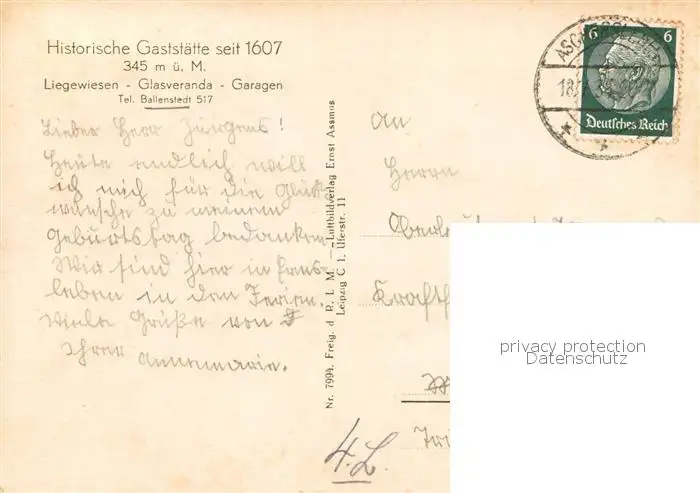 Historische Gaststätte seit 1607
345 m ü. M.
Liegewiesen - Glasveranda - Garagen
Tel. Ballenstedt 517
Lieber Herr Jürgens!
Heute endlich will
ich mich für die Glück-
wünsche zu meinem
Geburtstag bedanken.
Wir sind hier in
leben in den Ferien.
Viele Grüße von
Ihrer Annemarie.
Nr. 7994. Freig. d. R. L. M. — Luftbildverlag Ernst Assmus
Leipzig C 1, Uferstr. 11
6 6
Deutsches Reich
An
Herrn
4.L.
privacy protection
Datenschutz